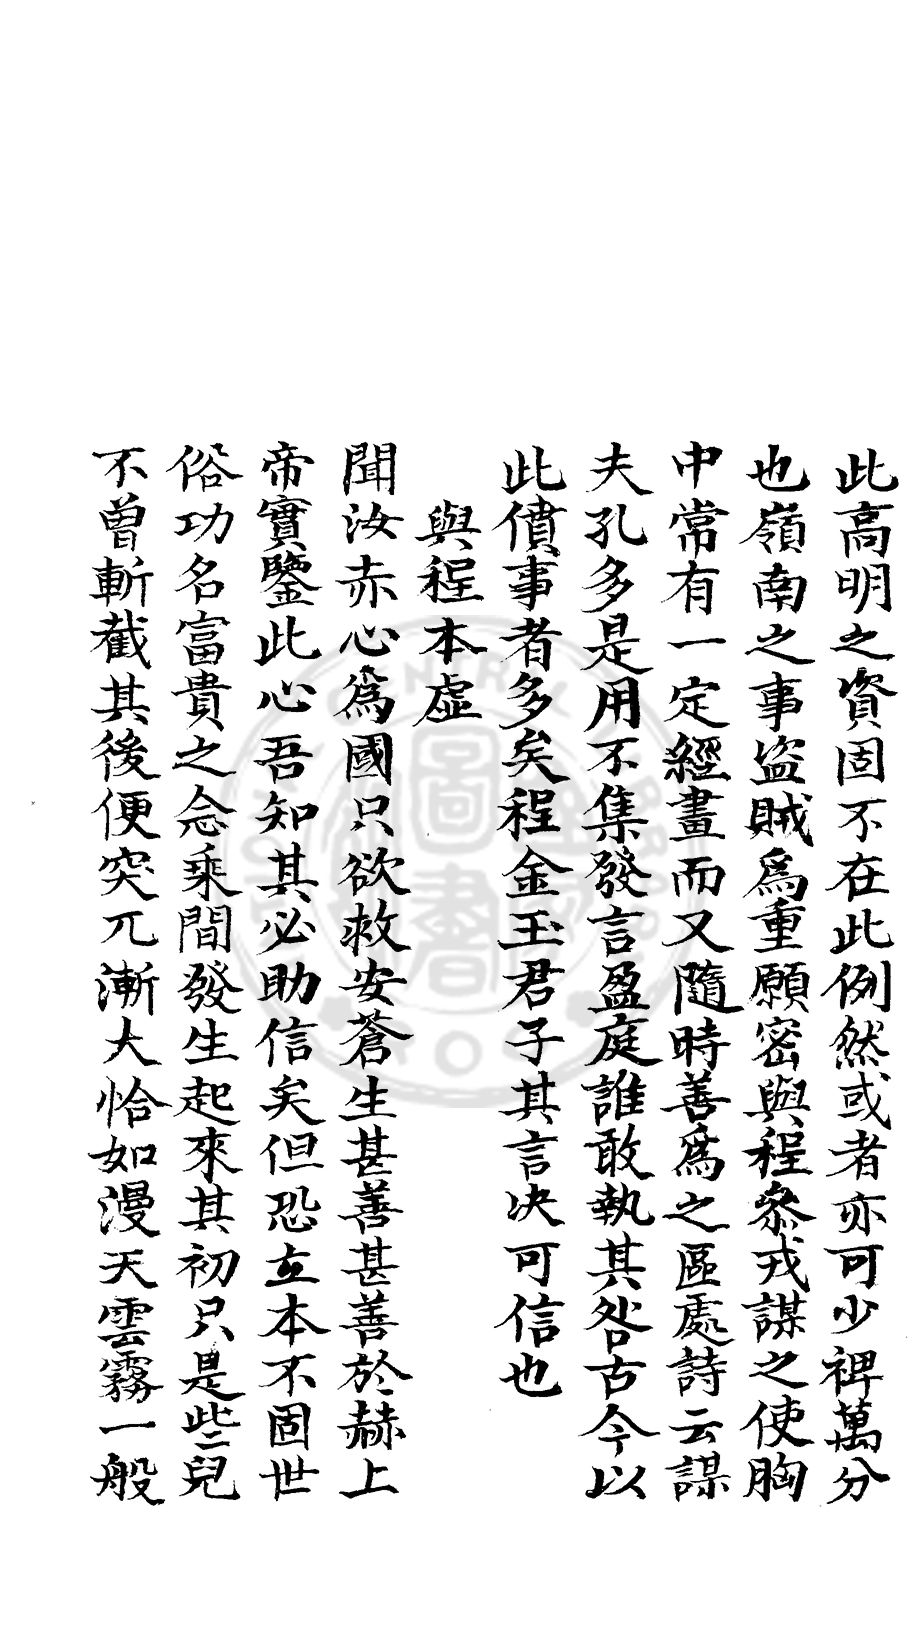 此高明之資固不在此例然或者亦可少裨萬分
也嶺南之事盜賊為重願密與程叅戎謀之使胸
中常有一定經畫而又隨時善為之區處詩云謀
夫孔多是用不集發言盈庭誰敢執其咎古今以
此僨事者多矣程金玉君子其言决可信也
與程本虛
聞汝赤心為國只欲救安蒼生甚善甚善於赫上
帝實鑒此心吾知其必助信矣但恐立本不固世
俗功名富貴之念乘間發生起來其初只是些兒
不曾斬截其後便突兀漸大恰如漫天雲霧一般
CENTRAL
圖書